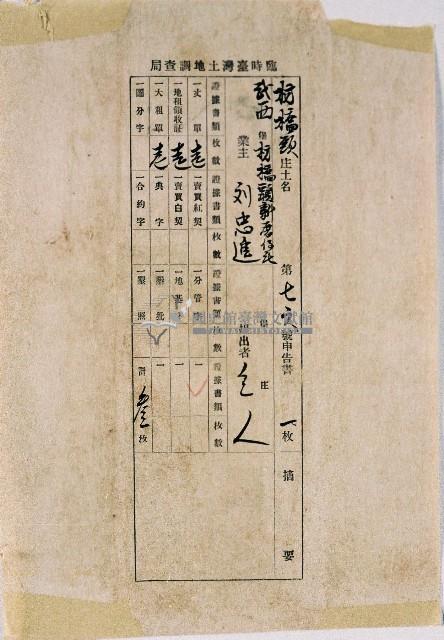 臨時臺灣土地調查局
枋橋頭庄土名 第七 號申告書 一枚摘要
武西堡枋橋頭 庄
業主 劉忠進
堡 庄
提出者 仝人
證據書類枚數 證據書類枚數 證據書類枚數 證據書類枚數
一丈單 壱 一賣買紅契 一分管 一
一地租領收証 壱 一賣買白契 一地基 一
一大租單 壱 一典字 一墾批 一
一鬮分字 一合約字 一墾照 計叄枚
國史館臺灣文獻館